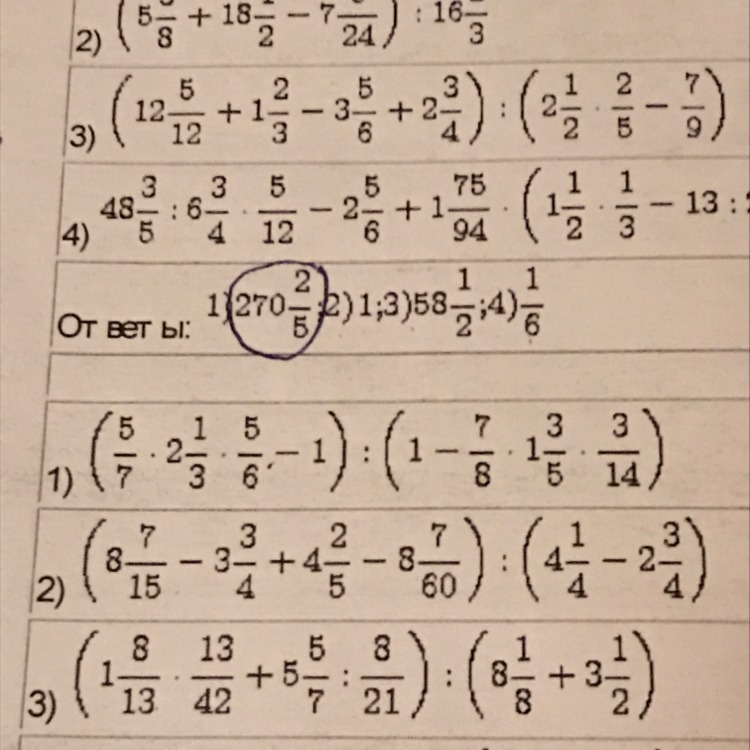 2) (5 /8 + 18 1/2 − 7 /24) : 16 /3
3) (12 5/12 + 1 2/3 − 3 5/6 + 2 3/4) : (2 1/2 · 2/5 − 7/9)
4) 48 3/5 : 6 3/4 · 5/12 − 2 5/6 + 1 75/94 · (1 1/2 · 1/3 − 13 :
Ответы: 1)270 2/5;2)1;3)58 1/2;4)1/6
1) (5/7 · 2 1/3 · 5/6 − 1) : (1 − 7/8 · 1 3/5 · 3/14)
2) (8 7/15 − 3 3/4 + 4 2/5 − 8 7/60) : (4 1/4 − 2 3/4)
3) (1 8/13 · 13/42 + 5 5/7 : 8/21) : (8 1/8 + 3 1/2)